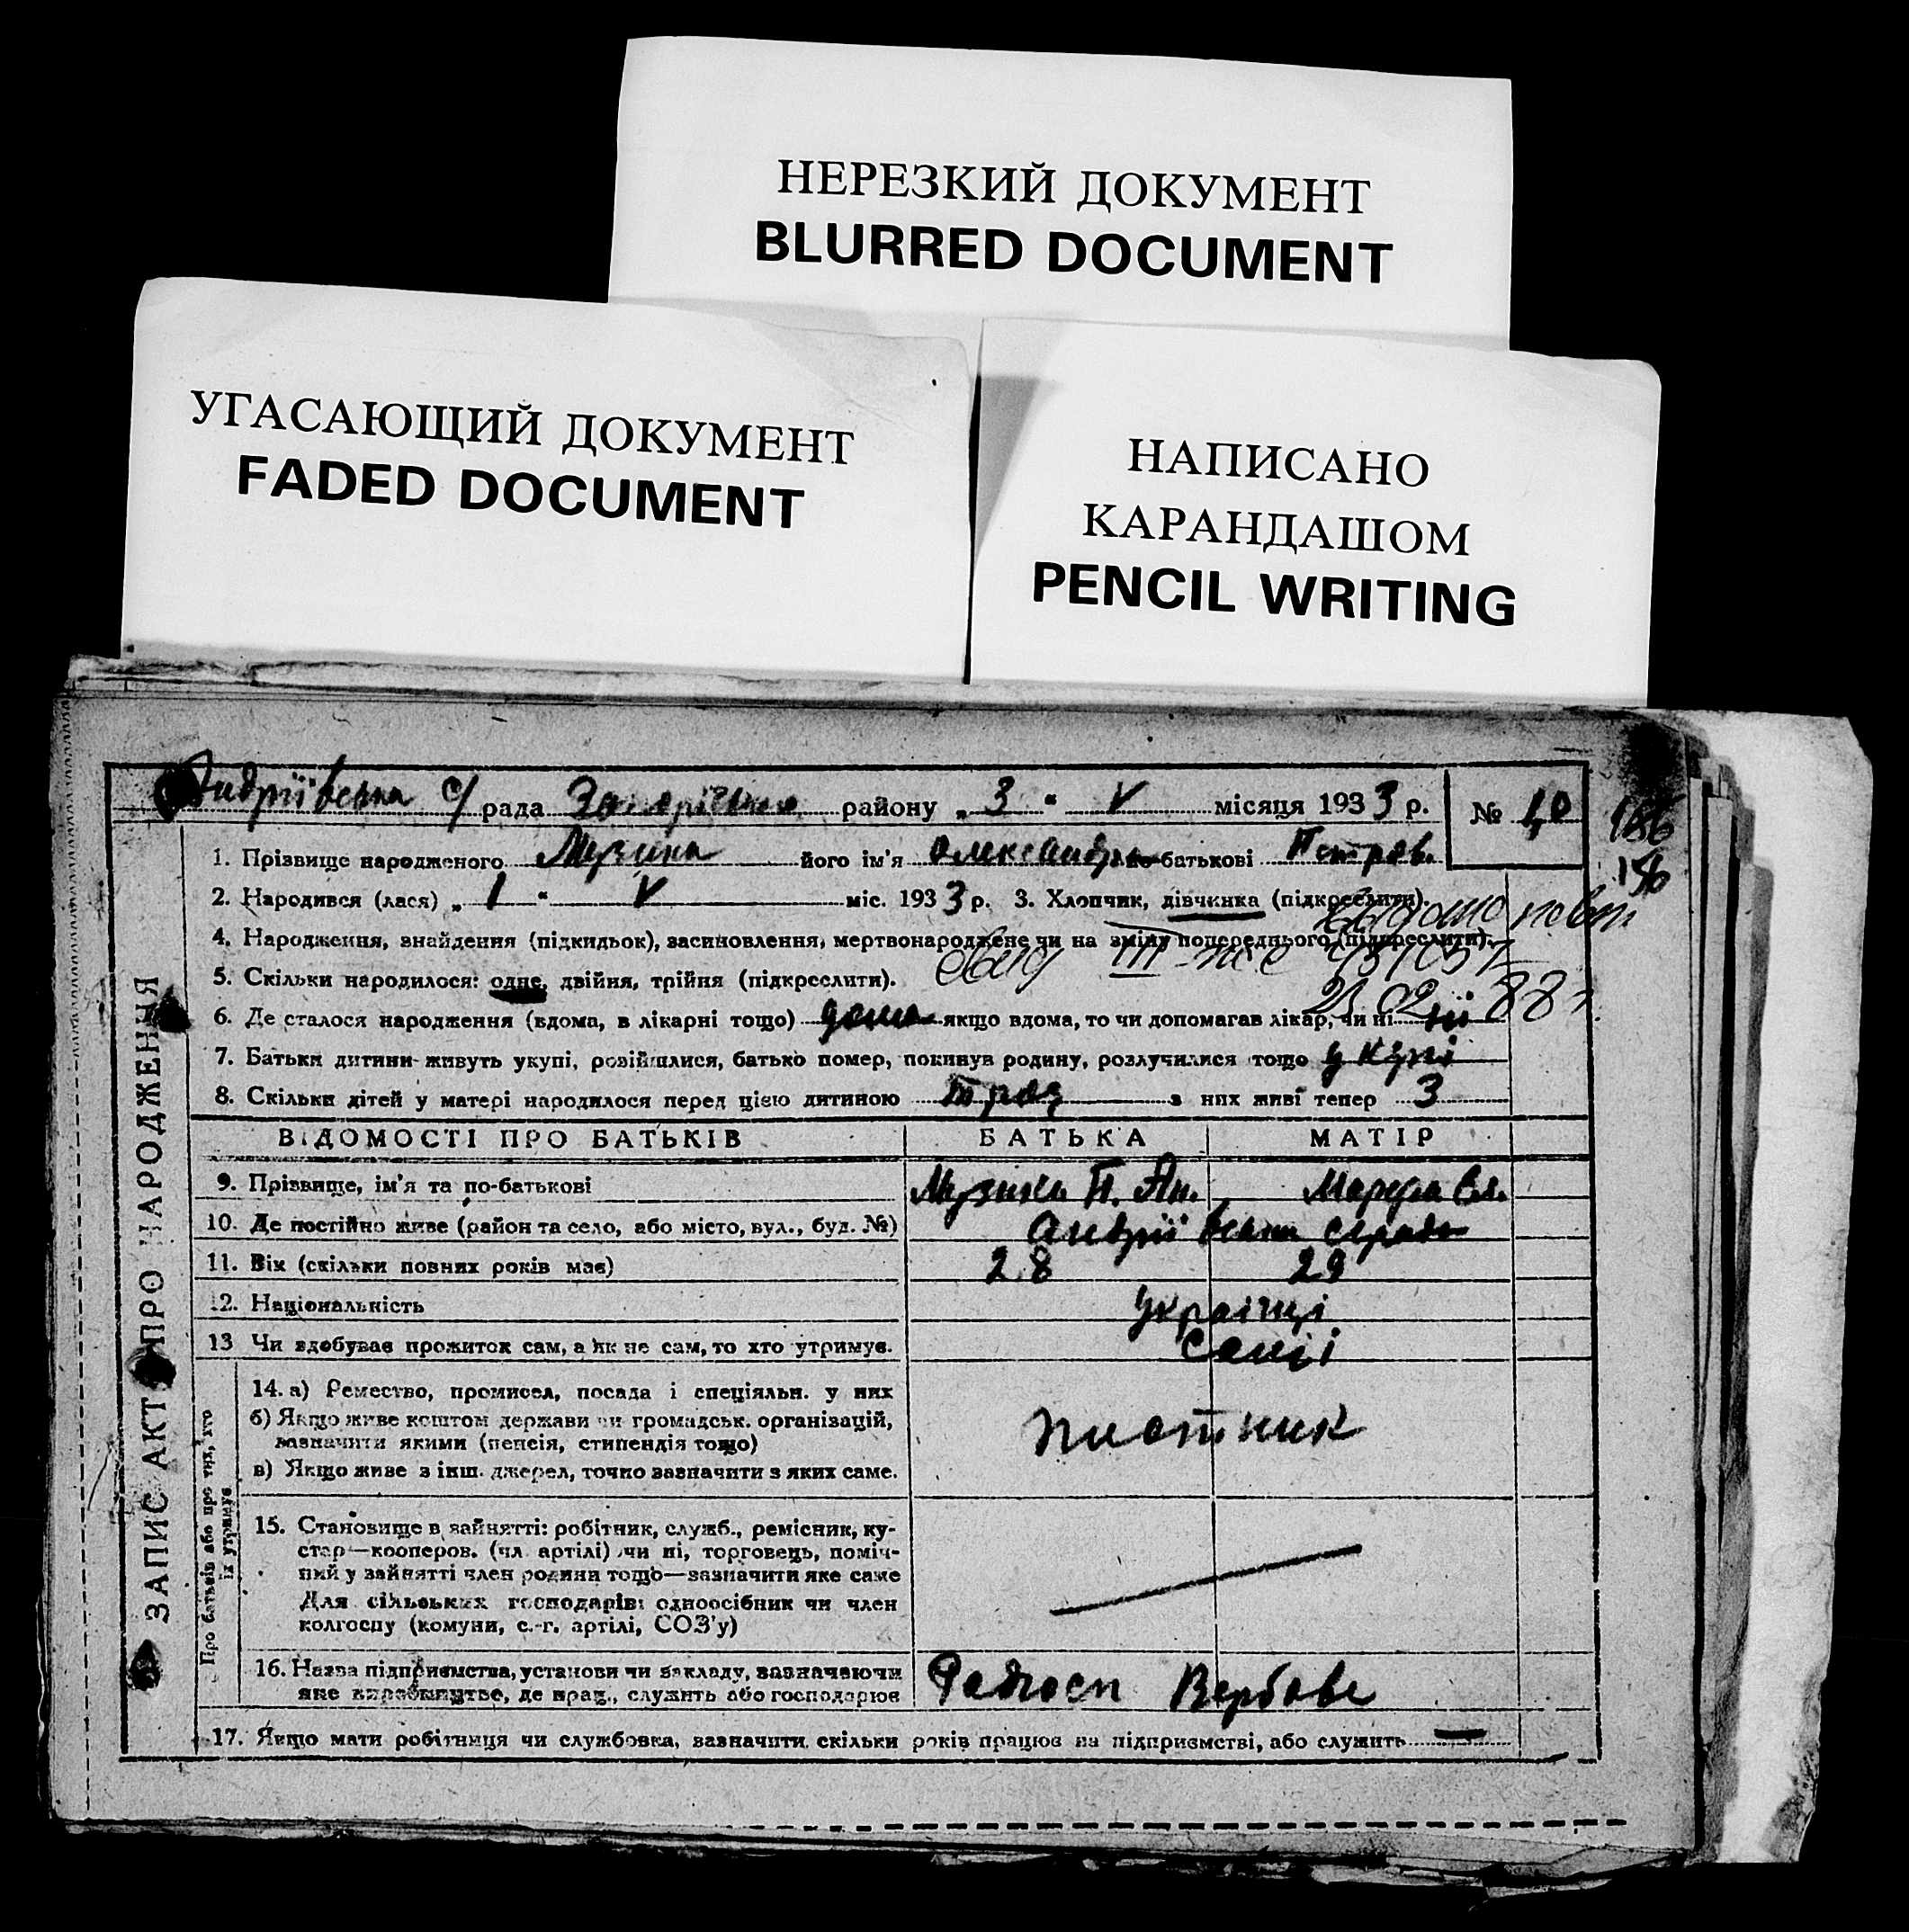 НЕРЕЗКИЙ ДОКУМЕНТ
BLURRED DOCUMENT
УГАСАЮЩИЙ ДОКУМЕНТ
FADED DOCUMENT
НАПИСАНО
КАРАНДАШОМ
PENCIL WRITING
Андріївська с/рада району „3“ V місяця 1933 р. № 40
186
156
ЗАПИС АКТ ПРО НАРОДЖЕННЯ
1. Прізвище народженого Музика його ім'я Олександра по-батькові Петров.
2. Народився (лася) „1“ V міс. 1933 р. 3. Хлопчик, дівчинка (підкреслити).
4. Народження, знайдення (підкидьок), засиновлення, мертвонароджене чи на зміну попереднього (підкреслити).
5. Скільки народилося: одне, двійня, трійня (підкреслити).
свид III
88 г.
6. Де сталося народження (вдома, в лікарні тощо) дома якщо вдома, то чи допомагав лікар, чи ні ні
7. Батьки дитини живуть укупі, розійшлися, батько помер, покинув родину, розлучилися тощо укупі
8. Скільки дітей у матері народилося перед цією дитиною троє з них живі тепер 3
ВІДОМОСТІ ПРО БАТЬКІВ БАТЬКА МАТІР
9. Прізвище, ім'я та по-батькові Музика П. Ан. Марфа
10. Де постійно живе (район та село, або місто, вул., буд. №) Андріївська с/рада
11. Вік (скільки повних років має) 28 29
12. Національність Українці
13 Чи здобуває прожиток сам, а як не сам, то хто утримує. Самі
Про батьків або про тих, хто їх утримує
14. а) Ремество, промисел, посада і спеціяльн. у них
б) Якщо живе коштом держави чи громадськ. організацій,
зазначити якими (пенсія, стипендія тощо)
в) Якщо живе з інш. джерел, точно зазначити з яких саме.
15. Становище в зайнятті: робітник, служб., ремісник, ку-
стар—кооперов. (чл. артілі) чи ні, торговець, поміч-
ний у зайнятті член родини тощо—зазначити яке саме
Для сільських господарів: одноосібник чи член
колгоспу (комуни, с.-г. артілі, СОЗ'у)
16. Назва підприємства, установи чи закладу, зазначаючи
яке виробництво, де прац., служить або господарює Радгосп Вербове
17. Якщо мати робітниця чи службовка, зазначити, скільки років працює на підприємстві, або служить —